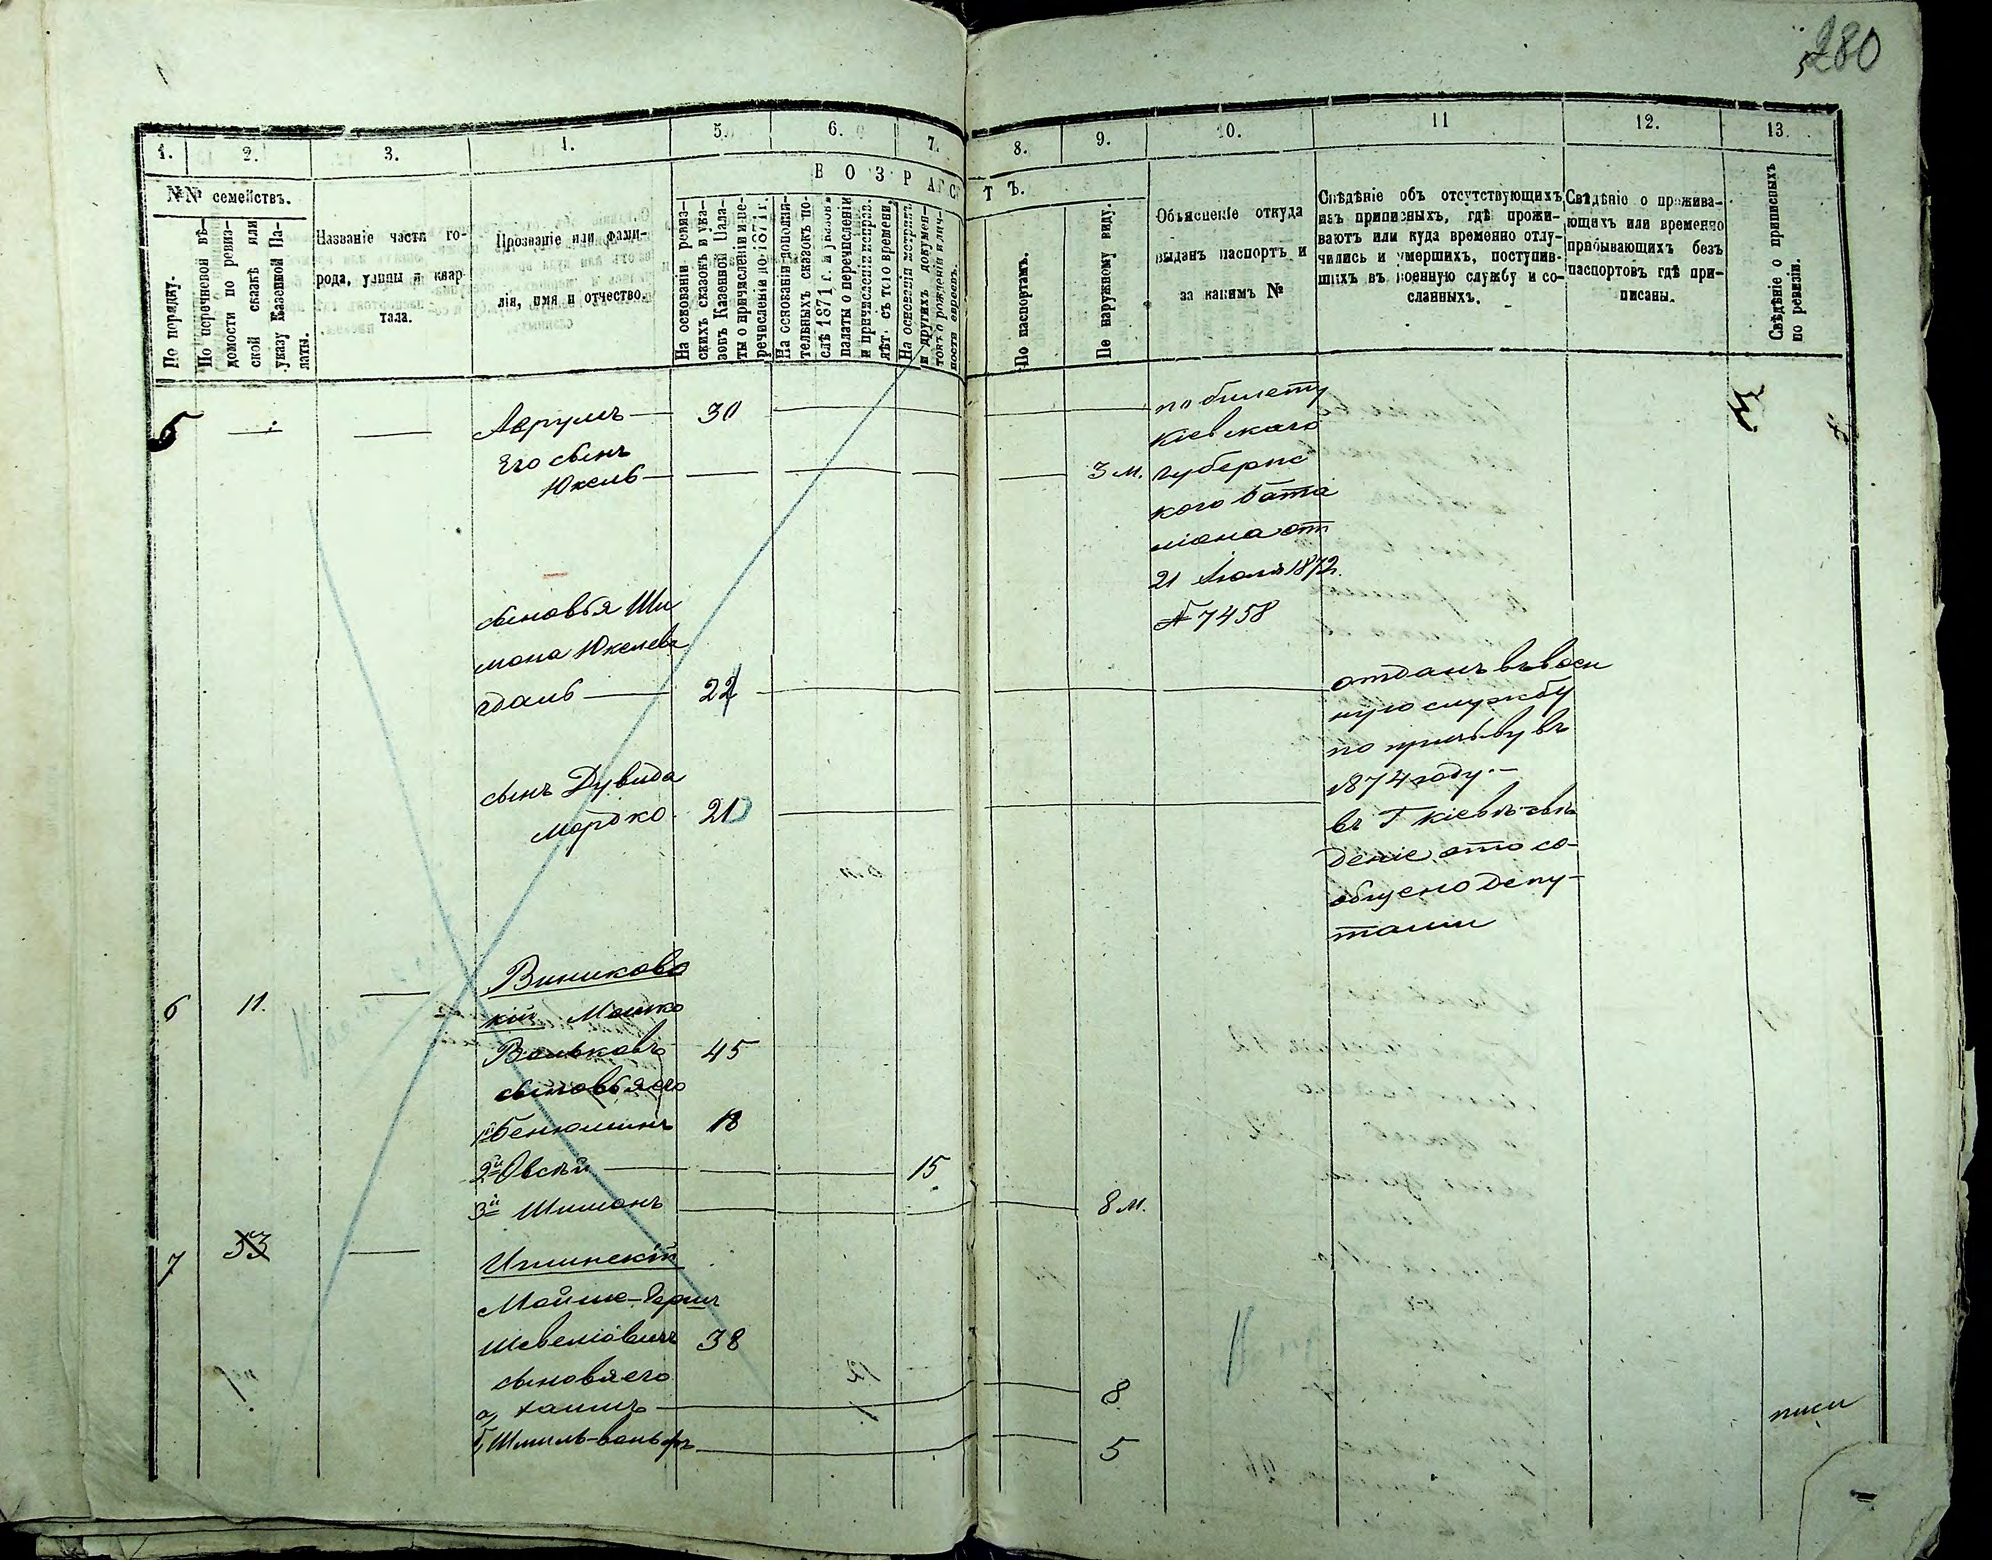 280
5
1.
2.
3.
4.
5.
6.
7.
8.
9.
10.
11
12.
13.
№№ семействъ.
ВОЗРАСТЪ.
По порядку.
По перечневой вѣ-
домости по ревиз-
ской сказкѣ или
указу Казенной Па-
латы.
Названіе части го-
рода, улицы и квар-
тала.
Прозваніе или фами-
лія, имя и отчество.
На основаніи ревиз-
скихъ сказокъ и ука-
зовъ Казенной Пала-
ты о причисленіи и пе-
речисленіи по 1871 г.
На основаніи дополни-
тельныхъ сказокъ по-
слѣ 1871 г. и указовъ
палаты о перечисленіи
и причисленіи и неправ.
лѣтъ съ того времени.
На основаніи метрикъ
и другихъ докумен-
товъ о рожденіи и лич-
ности евреевъ.
По паспортамъ.
По наружному виду.
Объясненіе откуда
выданъ паспортъ и
за какимъ №
Свѣдѣніе объ отсутствующихъ
изъ приписныхъ, гдѣ прожи-
ваютъ или куда временно отлу-
чились и умершихъ, поступив-
шихъ въ военную службу и со-
сланныхъ.
Свѣдѣніе о прожива-
ющихъ или временно
прибывающихъ безъ
паспортовъ гдѣ при-
писаны.
Свѣдѣніе о приписныхъ
по ревизіи.
5
Аврумъ — 30
Его сынъ
Юкель — 3 м.
по билету
Кіевскаго
губернс
кого бата
ліона отъ
21 Іюля 1872.
№ 7458
сыновья Ши
мона Юкелева
гдаль — 22
отданъ въ воен
ную службу
по призыву въ
1874 году. —
сынъ Дувида
Мордко 21
въ Г Кіевѣ свѣ
деніе это со-
общено депу-
тами
6 11. — Виниковс
кій Мошко
Вольковъ 45
сыновья его
1й Бенюминъ 18
2й Овсѣй — 15
3й Шимонъ 8 м.
7 53 — Ишинскій
Мойше-Герш
Шевеліовичъ 38
сыновя его
а, Хаимъ — 8
б, Шмиль-вольфъ 5
писи